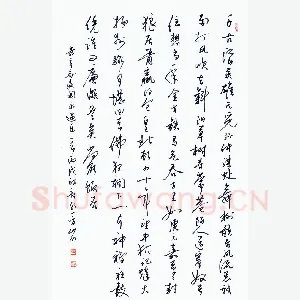 千古江山英雄无觅孙仲谋处舞榭歌台风流总被
雨打风吹去斜阳草树寻常巷陌人道寄奴曾
住想当年金戈铁马气吞万里如虎元嘉草草封
狼居胥赢得仓皇北顾四十三年望中犹记烽火
扬州路可堪回首佛狸祠下一片神鸦社鼓
凭谁问廉颇老矣尚能饭否
Shufawang.CN